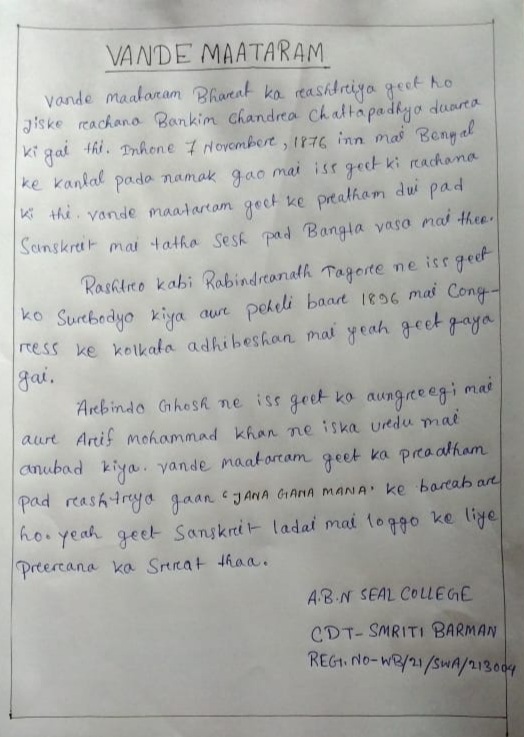 VANDE MAATARAM
Vande maataram Bharat ka reashtreiya geet ho
Jiske reachana Bankim Chandrea Chattapadhya duarea
ki gai thi. Inhone 7 Novembere, 1876 inn mai Bengal
ke kantal pada namak gao mai iss geet ki reachana
ki thi. vande maatarcam geet ke preatham dui pad
Sanskreit mai tatha Sesh pad Bangla vasa mai thee.
Rashtreo kabi Rabindreanath Tagoree ne iss geet
ko Surebodyo kiya aure peheli baare 1896 mai Cong-
ress ke kolkata adhibeshan mai yeah geet gaya
gai.
Arebindo Ghosh ne iss geet ka aungreegi mai
aure Areif mohammad khan ne iska uredu mai
anubad kiya. vande maatarcam geet ka preatham
pad reashtreya gaan "JANA GANA MANA" ke bareabare
ho. yeah geet Sanskreit ladai mai loggo ke liye
preereana ka Sreeat thaa.
A.B.N SEAL COLLEGE
CDT- SMRITI BARMAN
REG. NO-WB/21/SWA/213004